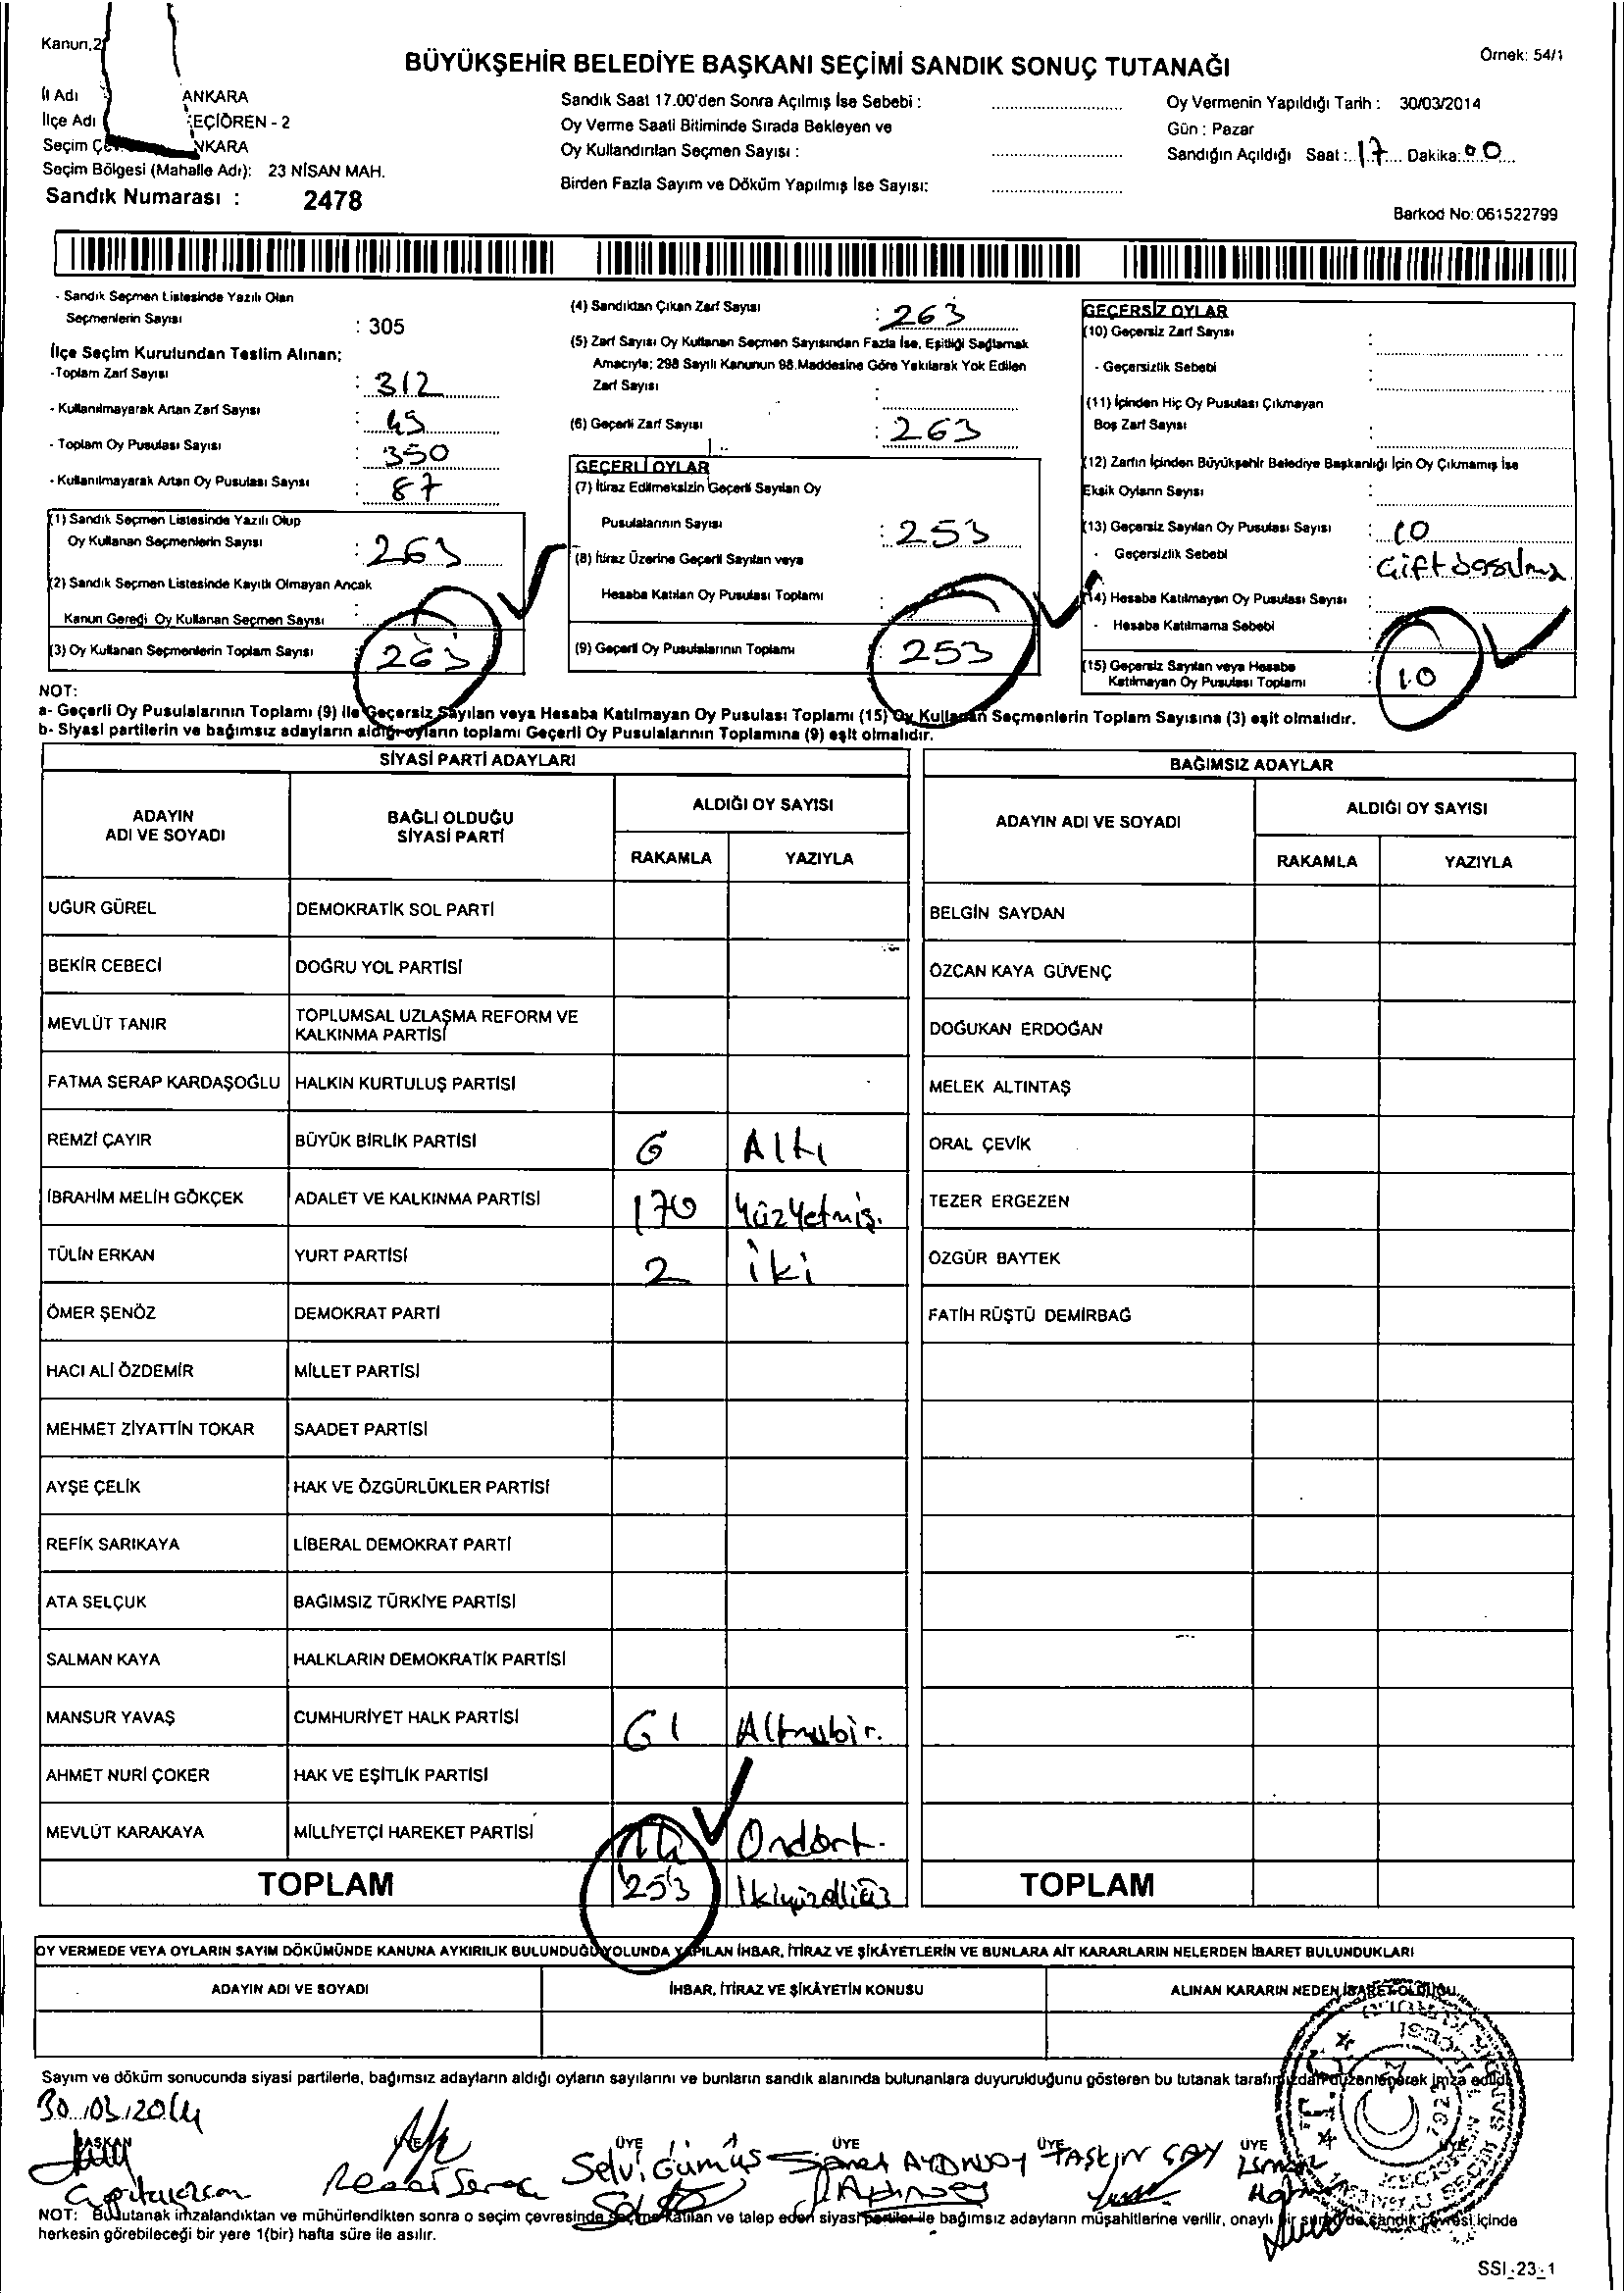 Kanun,2
BÜYÜKŞEHİR BELEDİYE BAŞKANI SEÇİMİ SANDIK SONUÇ TUTANAĞI
Örnek: 54/1
İl Adı ANKARA
İlçe Adı EÇİÖREN - 2
Seçim Çe NKARA
Seçim Bölgesi (Mahalle Adı): 23 NİSAN MAH.
Sandık Numarası : 2478
Sandık Saat 17.00'den Sonra Açılmış İse Sebebi :
Oy Verme Saati Bitiminde Sırada Bekleyen ve
Oy Kullandırılan Seçmen Sayısı :
Birden Fazla Sayım ve Döküm Yapılmış İse Sayısı:
Oy Vermenin Yapıldığı Tarih : 30/03/2014
Gün : Pazar
Sandığın Açıldığı Saat : 17 Dakika: 00
Barkod No: 061522799
- Sandık Seçmen Listesinde Yazılı Olan
Seçmenlerin Sayısı : 305
İlçe Seçim Kurulundan Teslim Alınan;
-Toplam Zarf Sayısı : 312
- Kullanılmayarak Artan Zarf Sayısı : 49
- Toplam Oy Pusulası Sayısı : 350
- Kullanılmayarak Artan Oy Pusulası Sayısı : 87
(1) Sandık Seçmen Listesinde Yazılı Olup
Oy Kullanan Seçmenlerin Sayısı : 263
(2) Sandık Seçmen Listesinde Kayıtlı Olmayan Ancak
Kanun Gereği Oy Kullanan Seçmen Sayısı :
(3) Oy Kullanan Seçmenlerin Toplam Sayısı : 263
(4) Sandıktan Çıkan Zarf Sayısı : 263
(5) Zarf Sayısı Oy Kullanan Seçmen Sayısından Fazla İse, Eşitliği Sağlamak
Amacıyla; 298 Sayılı Kanunun 98.Maddesine Göre Yakılarak Yok Edilen
Zarf Sayısı :
(6) Geçerli Zarf Sayısı : 263
GEÇERLİ OYLAR
(7) İtiraz Edilmeksizin Geçerli Sayılan Oy
Pusulalarının Sayısı : 253
(8) İtiraz Üzerine Geçerli Sayılan veya
Hesaba Katılan Oy Pusulası Toplamı :
(9) Geçerli Oy Pusulalarının Toplamı : 253
GEÇERSİZ OYLAR
(10) Geçersiz Zarf Sayısı :
- Geçersizlik Sebebi :
(11) İçinden Hiç Oy Pusulası Çıkmayan
Boş Zarf Sayısı :
(12) Zarfın İçinden Büyükşehir Belediye Başkanlığı İçin Oy Çıkmamış İse
Eksik Oyların Sayısı :
(13) Geçersiz Sayılan Oy Pusulası Sayısı : 10
- Geçersizlik Sebebi : Çift basılma
(14) Hesaba Katılmayan Oy Pusulası Sayısı :
- Hesaba Katılmama Sebebi :
(15) Geçersiz Sayılan veya Hesaba
Katılmayan Oy Pusulası Toplamı : 10
NOT:
a- Geçerli Oy Pusulalarının Toplamı (9) ile Geçersiz Sayılan veya Hesaba Katılmayan Oy Pusulası Toplamı (15) Oy Kullanan Seçmenlerin Toplam Sayısına (3) eşit olmalıdır.
b- Siyasi partilerin ve bağımsız adayların aldığı oyların toplamı Geçerli Oy Pusulalarının Toplamına (9) eşit olmalıdır.
SİYASİ PARTİ ADAYLARI
ADAYIN ADI VE SOYADI BAĞLI OLDUĞU SİYASİ PARTİ ALDIĞI OY SAYISI
RAKAMLA YAZIYLA
UĞUR GÜREL DEMOKRATİK SOL PARTİ
BEKİR CEBECİ DOĞRU YOL PARTİSİ
MEVLÜT TANIR TOPLUMSAL UZLAŞMA REFORM VE KALKINMA PARTİSİ
FATMA SERAP KARDAŞOĞLU HALKIN KURTULUŞ PARTİSİ
REMZİ ÇAYIR BÜYÜK BİRLİK PARTİSİ 6 Altı
İBRAHİM MELİH GÖKÇEK ADALET VE KALKINMA PARTİSİ 170 Yüzyetmiş.
TÜLİN ERKAN YURT PARTİSİ 2 iki
ÖMER ŞENÖZ DEMOKRAT PARTİ
HACI ALİ ÖZDEMİR MİLLET PARTİSİ
MEHMET ZİYATTİN TOKAR SAADET PARTİSİ
AYŞE ÇELİK HAK VE ÖZGÜRLÜKLER PARTİSİ
REFİK SARIKAYA LİBERAL DEMOKRAT PARTİ
ATA SELÇUK BAĞIMSIZ TÜRKİYE PARTİSİ
SALMAN KAYA HALKLARIN DEMOKRATİK PARTİSİ
MANSUR YAVAŞ CUMHURİYET HALK PARTİSİ 61 Altmışbir.
AHMET NURİ ÇOKER HAK VE EŞİTLİK PARTİSİ
MEVLÜT KARAKAYA MİLLİYETÇİ HAREKET PARTİSİ 14 Ondört.
TOPLAM 253 İkiyüzelliüç
BAĞIMSIZ ADAYLAR
ADAYIN ADI VE SOYADI ALDIĞI OY SAYISI
RAKAMLA YAZIYLA
BELGİN SAYDAN
ÖZCAN KAYA GÜVENÇ
DOĞUKAN ERDOĞAN
MELEK ALTINTAŞ
ORAL ÇEVİK
TEZER ERGEZEN
ÖZGÜR BAYTEK
FATİH RÜŞTÜ DEMİRBAĞ
TOPLAM
OY VERMEDE VEYA OYLARIN SAYIM DÖKÜMÜNDE KANUNA AYKIRILIK BULUNDUĞU YOLUNDA YAPILAN İHBAR, İTİRAZ VE ŞİKÂYETLERİN VE BUNLARA AİT KARARLARIN NELERDEN İBARET BULUNDUKLARI
ADAYIN ADI VE SOYADI İHBAR, İTİRAZ VE ŞİKÂYETİN KONUSU ALINAN KARARIN NEDEN İBARET OLDUĞU
Sayım ve döküm sonucunda siyasi partilerle, bağımsız adayların aldığı oyların sayılarını ve bunların sandık alanında bulunanlara duyurulduğunu gösteren bu tutanak tarafımızdan düzenlenerek imza edildi
30.03.2014
BAŞKAN ÜYE ÜYE ÜYE ÜYE ÜYE
Selvi Gümüş
TAŞKIN ÇAY
T.C.
NOT: Bu tutanak imzalandıktan ve mühürlendikten sonra o seçim çevresinde seçime katılan ve talep eden siyasi partiler ile bağımsız adayların müşahitlerine verilir, onaylı bir sureti de sandık çevresi içinde
herkesin görebileceği bir yere 1(bir) hafta süre ile asılır.
SSI_23_1